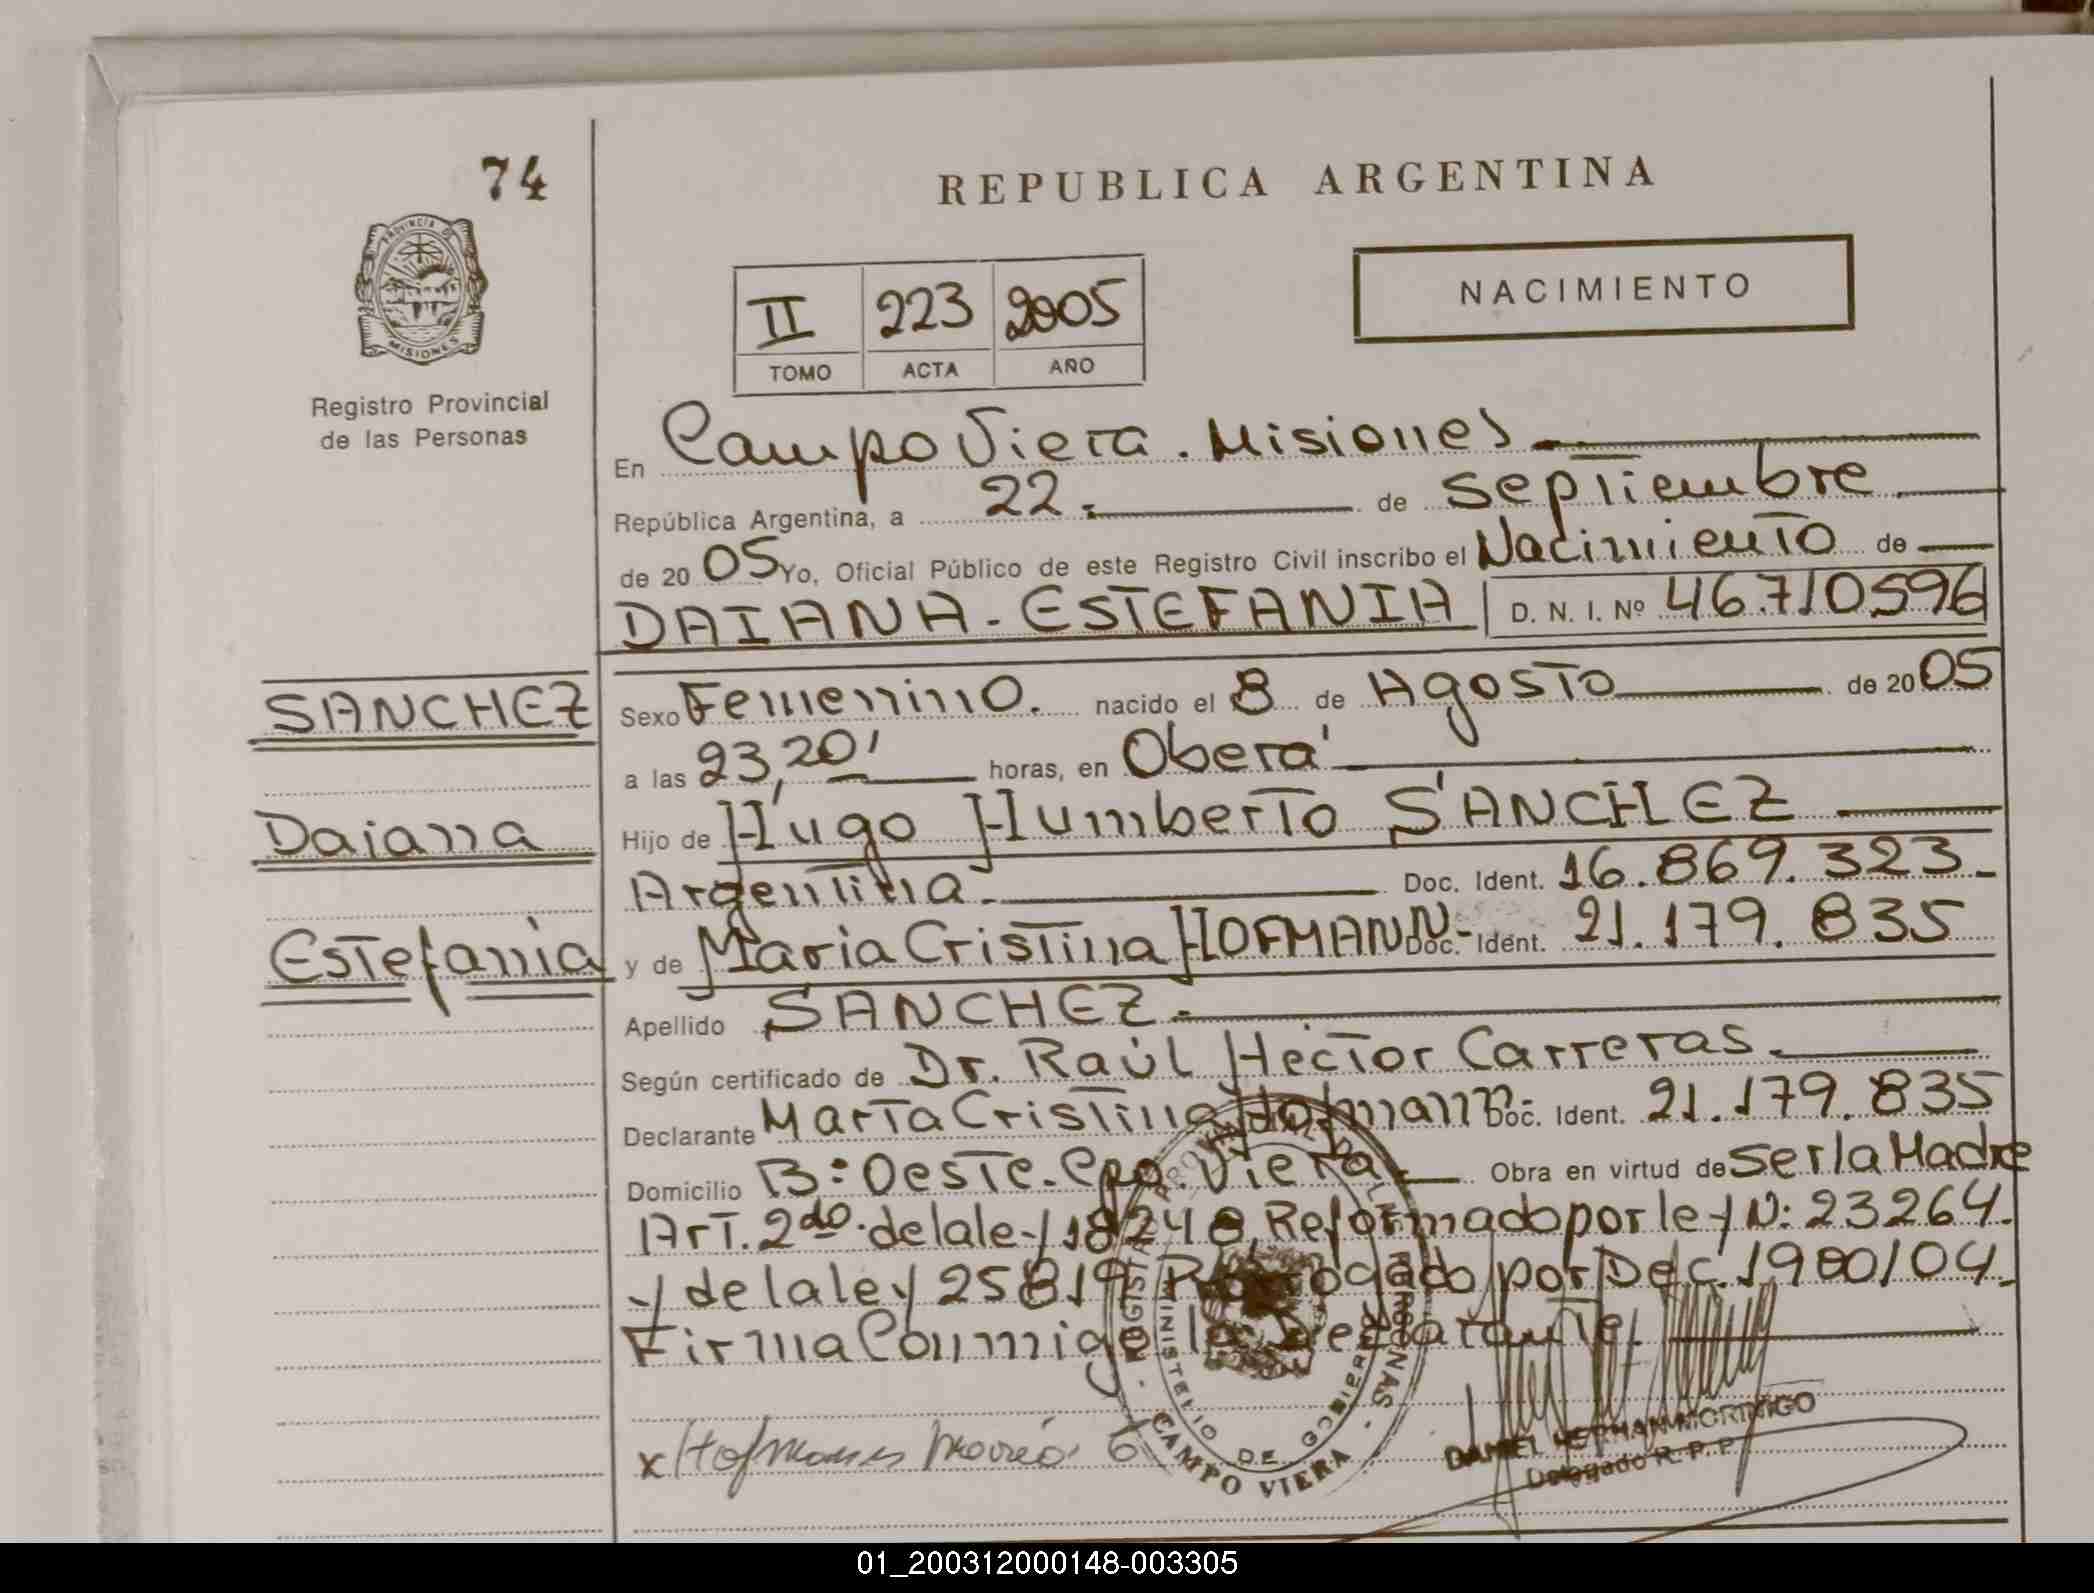 74
REPUBLICA ARGENTINA
PROVINCIA DE
MISIONES
Registro Provincial
de las Personas
II 223 2005
TOMO ACTA AÑO
NACIMIENTO
En Campo Viera. Misiones
República Argentina, a 22 de septiembre
de 20 05 Yo, Oficial Público de este Registro Civil inscribo el Nacimiento de
DAIANA - ESTEFANIA D. N. I. Nº 46710596
SANCHEZ
Daiana
Estefania
Sexo Femenino. nacido el 8 de Agosto de 20 05
a las 23,20' horas, en Oberá
Hijo de Hugo Humberto SANCHEZ
Argentina Doc. Ident. 16.869.323
y de Maria Cristina HOFMANN Doc. Ident. 21.179.835
Apellido SANCHEZ
Según certificado de Dr. Raúl Hector Carreras
Declarante Maria Cristina Hofmann Doc. Ident. 21.179.835
Domicilio B: Oeste. Cpo. Viera Obra en virtud de ser la Madre
Art. 2do. de la ley 18248, Reformado por ley N: 23264.
y de la ley 25819 Prorrogado por Dec. 1900/04.
Firma Conmigo la Declarante.
x Hofmann María C
MINISTERIO DE GOBIERNO
CAMPO VIERA
DANIEL HERNAN MORINIGO
Delegado R. P. P.
01_200312000148-003305